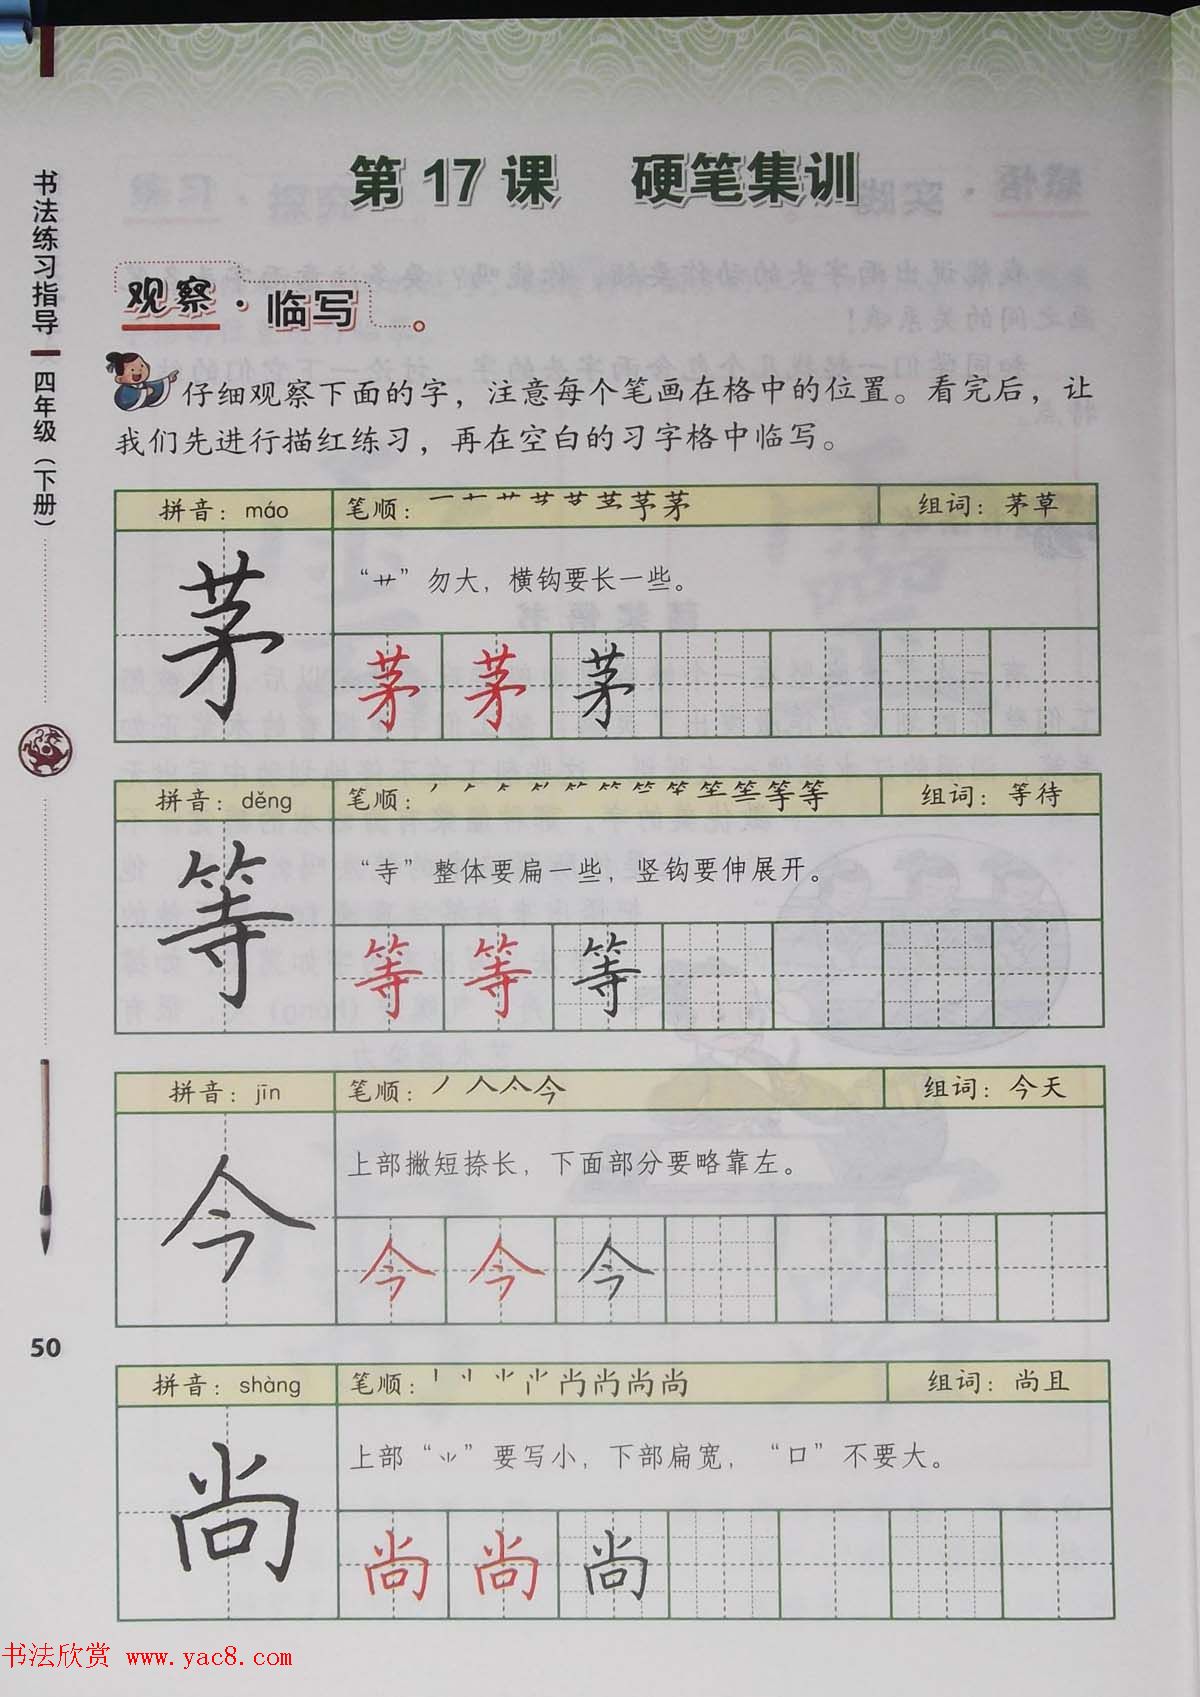 第17课 硬笔集训
书法练习指导
四年级（下册）
观察·临写
仔细观察下面的字，注意每个笔画在格中的位置。看完后，让
我们先进行描红练习，再在空白的习字格中临写。
拼音：máo 笔顺： 组词：茅草
茅
“艹”勿大，横钩要长一些。
茅 茅 茅
拼音：děng 笔顺： 组词：等待
等
“寺”整体要扁一些，竖钩要伸展开。
等 等 等
拼音：jīn 笔顺： 组词：今天
今
上部撇短捺长，下面部分要略靠左。
今 今 今
50
拼音：shàng 笔顺： 组词：尚且
尚
上部“⺌”要写小，下部扁宽，“口”不要大。
尚 尚 尚
书法欣赏 www.yac8.com